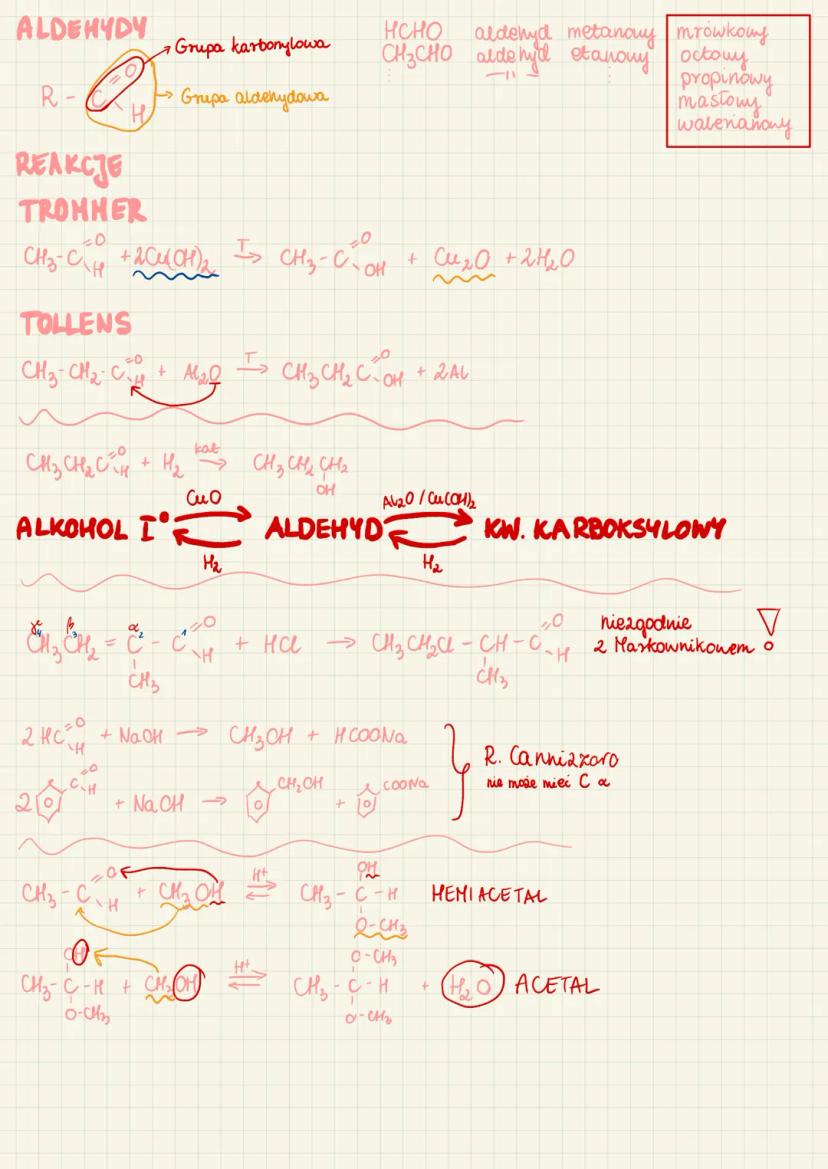 ALDEHYDY
Grupa karbonylowa
R - C =O H
Grupa aldehydowa
HCHO aldehyd metanowy
CH3CHO aldehyd etanowy
mrówkowy
octowy
propinowy
masłowy
walerianowy
REAKCJE
TROMMER
CH3-C =O -H + 2Cu(OH)2 T→ CH3-C =O OH + Cu2O + 2H2O
TOLLENS
CH3-CH2-C =O -H + Al2O T→ CH3CH2C =O OH + 2Al
CH3CH2C =O H + H2 kat→ CH3CH2CH2 OH
CuO Al2O / Cu(OH)2
ALKOHOL I° ALDEHYD KW. KARBOKSYLOWY
H2 H2
γ 4 β 3 α 2 1
CH3CH2 = C - C =O H + HCl → CH3CH2Cl - CH - C =O H
CH3 CH3
niezgodnie
z Markownikowem !
2 HC =O H + NaOH → CH3OH + HCOONa
2 C =O H + NaOH → CH2OH + COONa
R. Cannizzaro
nie może mieć C α
CH3 - C =O H + CH3OH H+ ⇌ CH3 - C - H OH O-CH3 HEMIACETAL
CH3 - C - H OH O-CH3 + CH3OH H+ ⇌ CH3 - C - H O-CH3 O-CH3 + H2O ACETAL